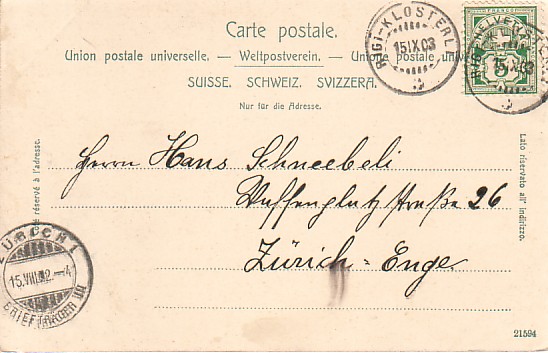 Carte postale.
Union postale universelle. — Weltpostverein. — Unione postale universale
SUISSE. SCHWEIZ. SVIZZERA.
Nur für die Adresse.
RIGI-KLÖSTERLI
15 IX 03
5
Côté réservé à l'adresse.
Lato riservato all' indirizzo.
Herrn Hans Schneebeli
Waffenplatz Straße 26
Zürich-Enge
ZÜRICH 1
15.VIII.02.-4
BRIEFTRÄGER III
21594